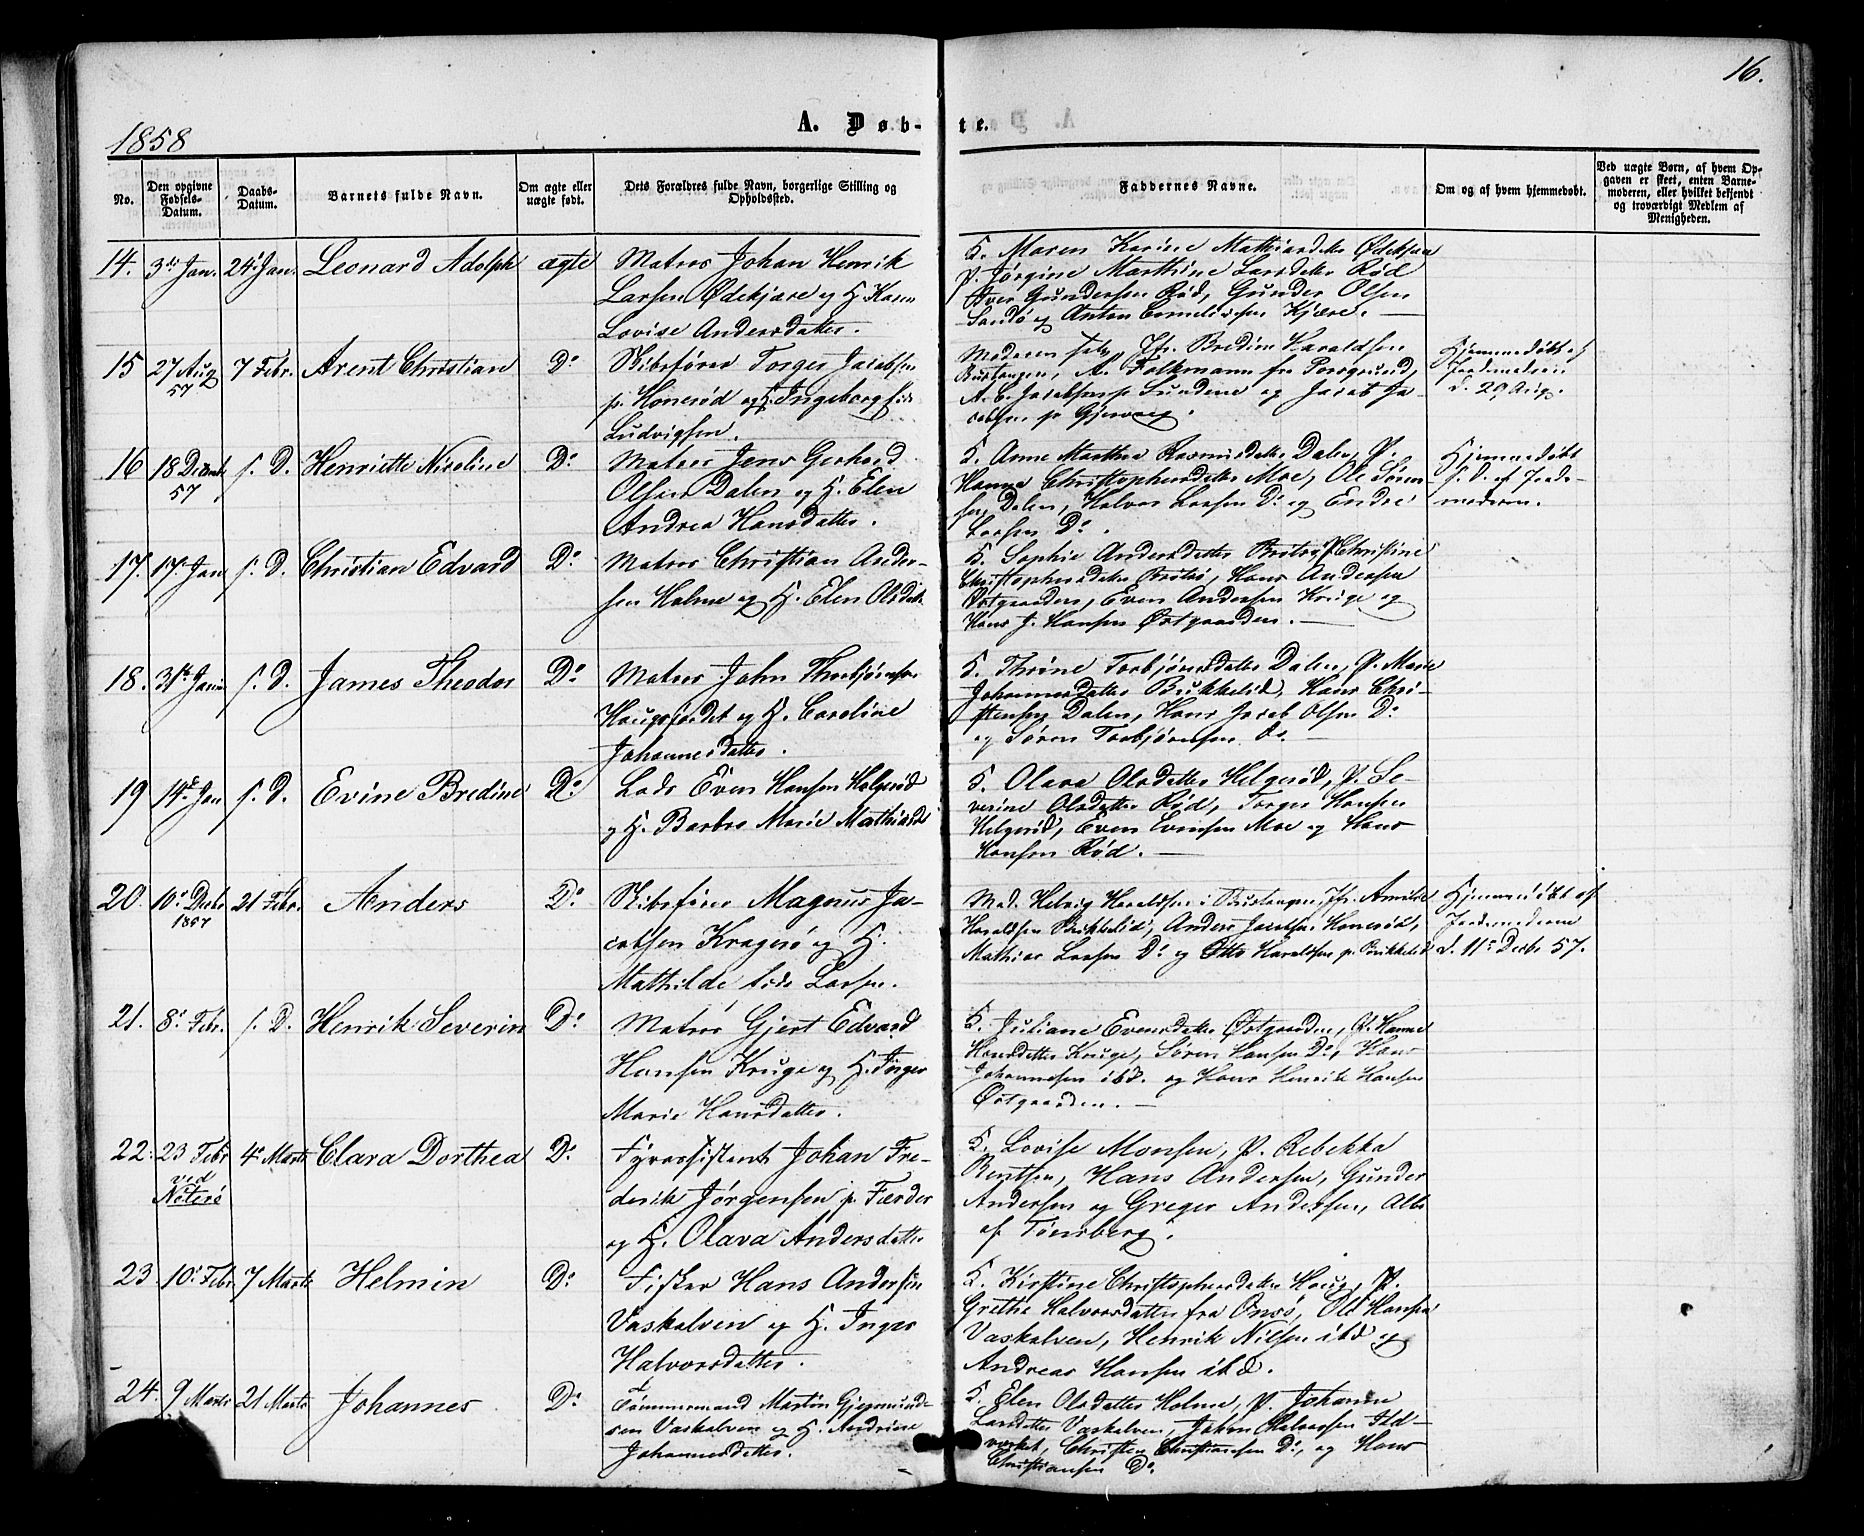 16.
1858
A. Døb-
te.
No.
Den opgivne Fødsels-Datum.
Daabs-Datum.
Barnets fulde Navn.
Om ægte eller uægte født.
Dets Forældres fulde Navn, borgerlige Stilling og Opholdssted.
Faddernes Navne.
Om og af hvem hjemmedøbt.
Ved uægte Børn, af hvem Opgaven er skeet, enten Barnemoderen, eller hvilket bekjendt og troværdigt Medlem af Menigheden.
14. 3die Jan. 24de Jan. Leonard Adolph ægte
Matros Johan Henrik
Larsen Ødekjære og H. Karen
Lovise Andersdatter.
K. Maren Karine Mathiasdatter
P. Jørgine Marthine Larsdatter Rød
Iver Gundersen Rød, Gunder Olsen
Sandø og Anton Cornelissen Kjære.
15 27 Aug 57 7 Febr. Arent Christian Do
Skibsfører Torger Jacobsen
p. Honerød og H. Ingeborg f.
Ludvigsen.
Moderen selv, Jfr. Bredine Haraldsen
Bustangen, A. Folkmann fra Porsgrund,
A. C. Jacobsen p. Sundene og Jacob Ja-
cobsen p. Gjervaag.
Hjemmedøbt af
Jordmoderen
d. 29 Aug.
16 18 Decembr 57 s. D. Henriette Nicoline Do
Matros Jens Gerhard
Olsen Dalen og H. Elen
Andrea Hansdatter.
K. Anne Marthea Rasmusdatter Dalen, P.
Hanna Christophersdatter Moe, Ole Søren-
sen Dalen, Halvor Larsen Do og Endre
Larsen Do.
Hjemmedøbt
s. D. af Jorde-
moderen.
17. 17de Jan s. D. Christian Edvard Do
Matros Christian Ander-
sen Holme og H. Elen Olsdatter
K. Sophie Andersdatter Bratrø, P. Christine
Christophersdatter Bratrø, Hans Andersen
Østgaarden, Even Andersen Kruge og
Hans J. Hansen Østgaarden.
18. 3die Januar s. D. James Theodor Do
Matros John Thorbjørnsen
Haugsjordet og H. Caroline
Johannesdatter.
K. Thrine Torbjørnsdatter Dalen, P. Marie
Johannesdatter Brekkelid, Hans Chri-
stensen Dalen, Hans Jacob Olsen Do
og Søren Torbjørnsen do.
19 14de Jan s. D. Evine Bredine Do
Lods Even Hansen Helgerød
og H. Barbro Marie Mathiasd
K. Olava Olsdatter Helgerød, P. Se-
verine Olsdatter Rød, Torger Hansen
Helgerød, Even Evensen Moe og Hans
Hansen Rød.
20. 10de Decbr 1857 21 Febr. Anders Do
Skibsfører Magnus Ja-
cobsen Kragerø og H.
Mathilde føds Larsen.
Mad. Helvig Haraldsen i Bustangen, Jfr. Amalie
Haraldsen Brekkelid, Anders Jacobsen Honerød,
Mathias Larsen Do og Otto Haraldsen p. Brekkelid
Hjemmedøbt af
Jordemoderen
d. 11te Decbr 57.
21. 8de Febr. s. D. Henrik Severin Do
Matros Gjert Edvard
Hansen Kruge og H. Inger
Marie Hansdatter.
K. Juliane Evensdatter Østgaarden, P. Hanne
Hansdatter Kruge, Søren Hansen Do, Hans
Johannesen ibd. og Hans Henrik Hansen
Østgaarden.
22. 23 Febr ved Nøterø 4de Marts Clara Dorthea Do
Fyrassistent Johan Fre-
derik Jørgensen p. Færder
og H. Olava Andersdatter
K. Lovise Monsen, P. Rebekka
Bentsen, Hans Andersen, Gunder
Andersen og Greger Andersen, Alle
af Tønsberg.
23. 10de Febr 7 Marts Helmin Do
Fisker Hans Andersen
Vaskalven og H. Inger
Halvorsdatter.
K. Kirstine Christophersdatter Haug, P.
Grethe Halvorsdatter fra Onsø, Ole Hansen
Vaskalven, Henrik Nilsen ibd og
Andreas Hansen ibd.
24. 9 Marts 21 Marts Johannes Do
Tømmermand Martin Gjermund-
sen Vaskalven og H. Andrine
Johannesdatter.
K. Elen Olsdatter Holme, P. Johanne
Larsdatter Vaskalven, Johan
verket, Christen Christiansen Do, og Hans
Christiansen Do.